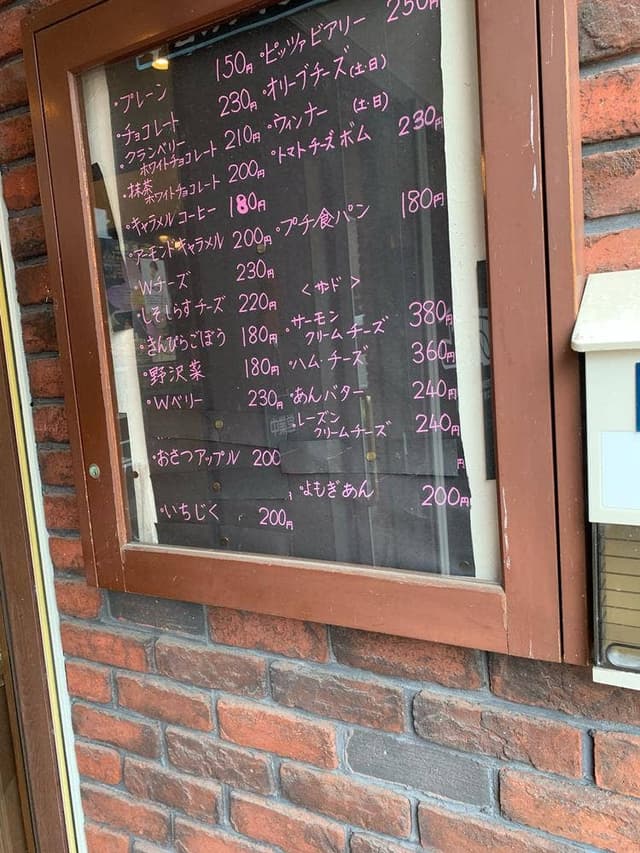 ・プレーン 150円
・チョコレート 230円
・クランベリー
ホワイトチョコレート 210円
・抹茶
ホワイトチョコレート 200円
・キャラメルコーヒー 180円
・アーモンドキャラメル 200円
・Wチーズ 230円
・しそしらすチーズ 220円
・きんぴらごぼう 180円
・野沢菜 180円
・Wベリー 230円
・おさつアップル 200
・いちじく 200円
・ピッツァビアリー 250円
・オリーブチーズ(土・日)
・ウィンナー (土・日)
・トマトチーズボム 230円
・プチ食パン 180円
<サンド>
・サーモン
クリームチーズ 380円
・ハムチーズ 360円
・あんバター 240円
・レーズン
クリームチーズ 240円
円
・よもぎあん 200円